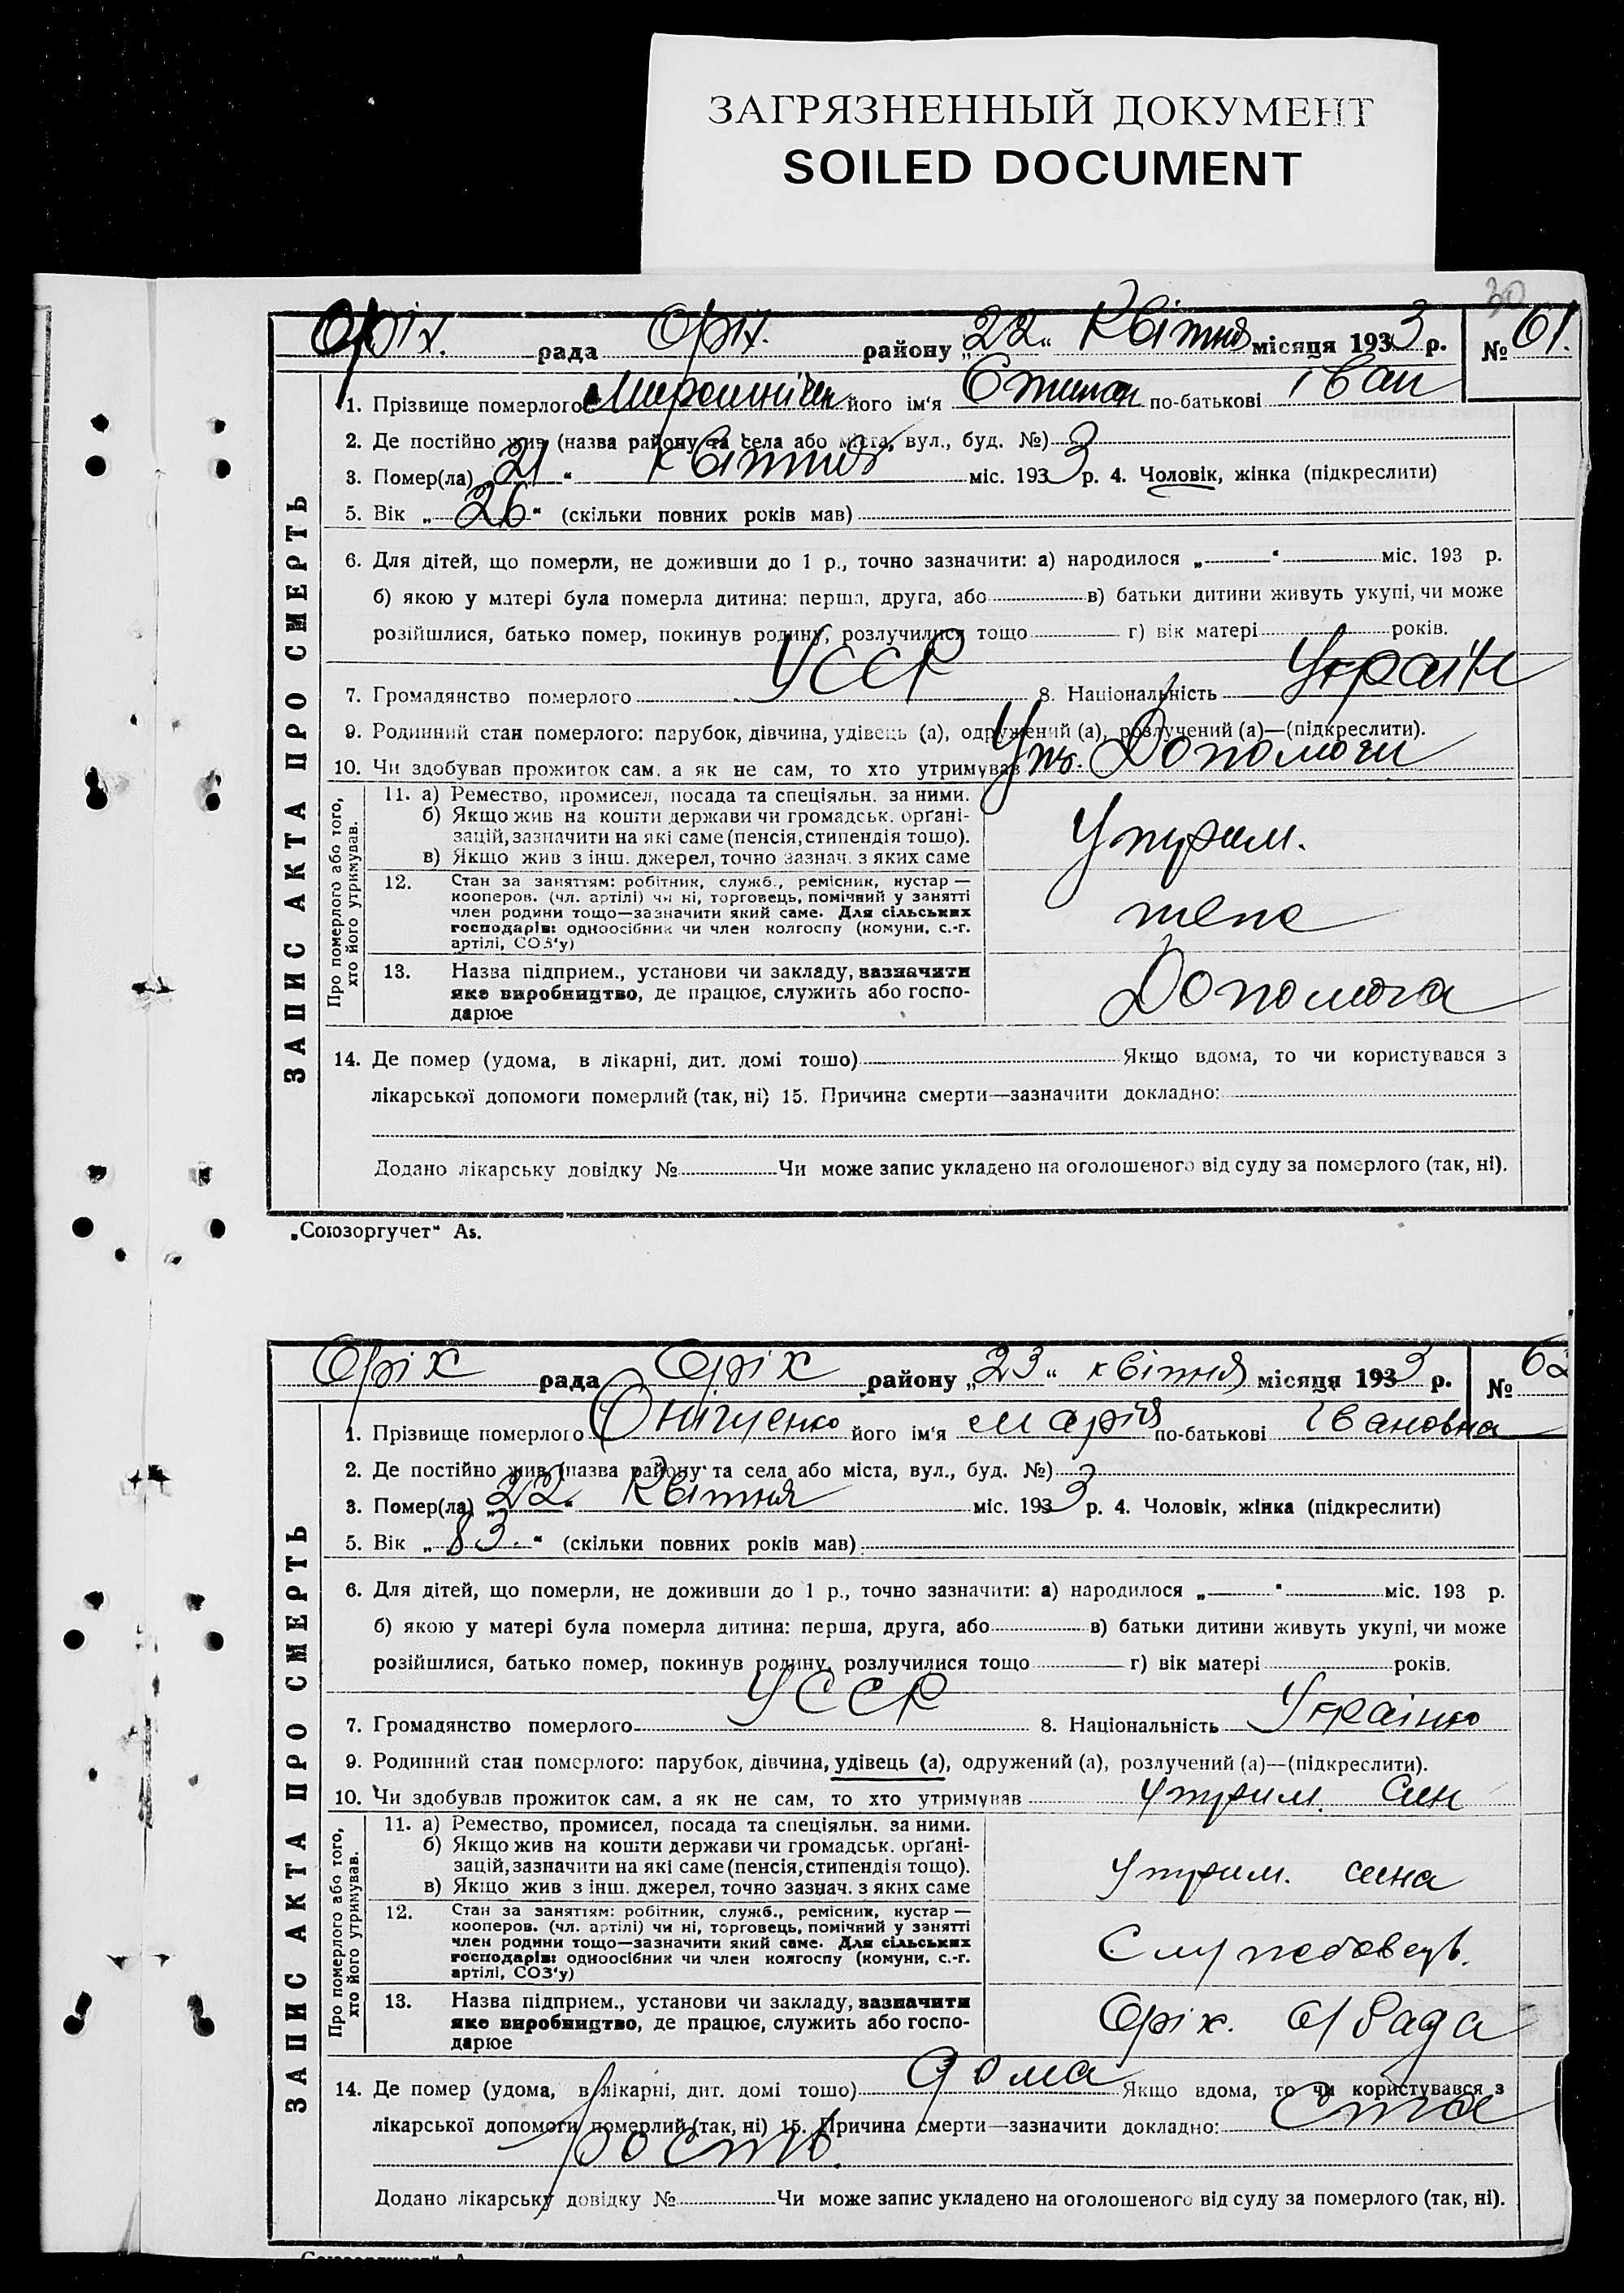 ЗАГРЯЗНЕННЫЙ ДОКУМЕНТ
SOILED DOCUMENT
30
Оріх. рада Оріх. району „22“ Квітня місяця 1933 р. № 61.
ЗАПИС АКТА ПРО СМЕРТЬ
1. Прізвище померлого його ім‘я Степан по-батькові Іван
2. Де постійно жив (назва району та села або міста, вул., буд. №)
3. Помер(ла) „21“ Квітня міс. 1933 р. 4. Чоловік, жінка (підкреслити)
5. Вік „26“ (скільки повних років мав)
6. Для дітей, що померли, не доживши до 1 р., точно зазначити: а) народилося „ “ міс. 193 р.
б) якою у матері була померла дитина: перша, друга, або в) батьки дитини живуть укупі, чи може
розійшлися, батько помер, покинув родину, розлучилися тощо г) вік матері років.
7. Громадянство померлого УССР 8. Національність Україн
9. Родинний стан померлого: парубок, дівчина, удівець (а), одружений (а), розлучений (а)—(підкреслити).
10. Чи здобував прожиток сам, а як не сам, то хто утримував Допомоги
Про померлого або того, хто його утримував.
11. а) Ремество, промисел, посада та спеціяльн. за ними.
б) Якщо жив на кошти держави чи громадськ. орґані-
зацій, зазначити на які саме (пенсія, стипендія тощо).
в) Якщо жив з інш. джерел, точно зазнач. з яких саме
Утрим.
12. Стан за заняттям: робітник, служб., ремісник, кустар —
кооперов. (чл. артілі) чи ні, торговець, помічний у занятті
член родини тощо—зазначити який саме. Для сільських
господарів: одноосібник чи член колгоспу (комуни, с.-г.
артілі, СОЗ‘у)
13. Назва підприєм., установи чи закладу, зазначити
яке виробництво, де працює, служить або госпо-
дарює
Допомога
14. Де помер (удома, в лікарні, дит. домі тощо) Якщо вдома, то чи користувався з
лікарської допомоги померлий (так, ні) 15. Причина смерти—зазначити докладно:
Додано лікарську довідку № Чи може запис укладено на оголошеного від суду за померлого (так, ні).
„Союзоргучет“ As.
Оріх рада Оріх району „23“ квітня місяця 1933 р. № 62
ЗАПИС АКТА ПРО СМЕРТЬ
1. Прізвище померлого Оніщенко його ім‘я Марія по-батькові Івановна
2. Де постійно жив (назва району та села або міста, вул., буд. №)
3. Помер(ла) „22“ Квітня міс. 1933 р. 4. Чоловік, жінка (підкреслити)
5. Вік „83.“ (скільки повних років мав)
6. Для дітей, що померли, не доживши до 1 р., точно зазначити: а) народилося „ “ міс. 193 р.
б) якою у матері була померла дитина: перша, друга, або в) батьки дитини живуть укупі, чи може
розійшлися, батько помер, покинув родину, розлучилися тощо г) вік матері років.
7. Громадянство померлого УССР 8. Національність Українка
9. Родинний стан померлого: парубок, дівчина, удівець (а), одружений (а), розлучений (а)—(підкреслити).
10. Чи здобував прожиток сам, а як не сам, то хто утримував утрим. син
Про померлого або того, хто його утримував.
11. а) Ремество, промисел, посада та спеціяльн. за ними.
б) Якщо жив на кошти держави чи громадськ. орґані-
зацій, зазначити на які саме (пенсія, стипендія тощо).
в) Якщо жив з інш. джерел, точно зазнач. з яких саме
утрим. сина
12. Стан за заняттям: робітник, служб., ремісник, кустар —
кооперов. (чл. артілі) чи ні, торговець, помічний у занятті
член родини тощо—зазначити який саме. Для сільських
господарів: одноосібник чи член колгоспу (комуни, с.-г.
артілі, СОЗ‘у)
Службовець.
13. Назва підприєм., установи чи закладу, зазначити
яке виробництво, де працює, служить або госпо-
дарює
Оріх. с/рада
14. Де помер (удома, в лікарні, дит. домі тощо) дома Якщо вдома, то чи користувався з
лікарської допомоги померлий (так, ні) 15. Причина смерти—зазначити докладно: Ста
рость.
Додано лікарську довідку № Чи може запис укладено на оголошеного від суду за померлого (так, ні).